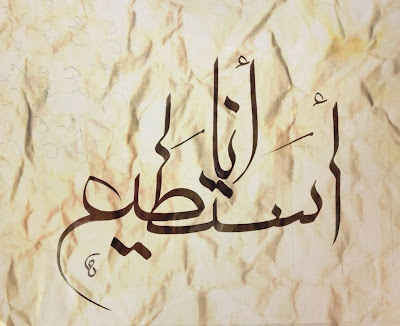 أنا
أستطيع